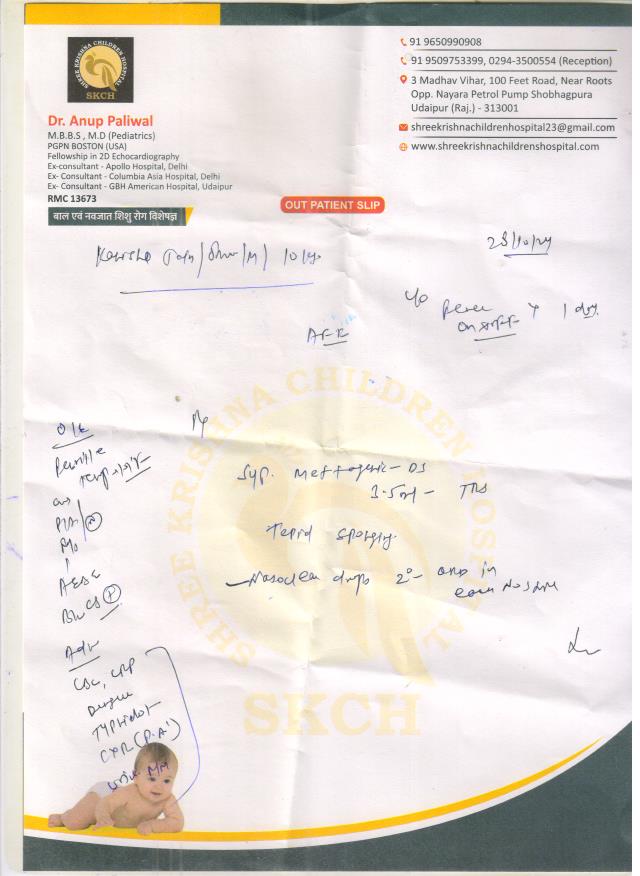 SHREE KRISHNA CHILDREN HOSPITAL
SKCH
91 9650990908
91 9509753399, 0294-3500554 (Reception)
3 Madhav Vihar, 100 Feet Road, Near Roots
Opp. Nayara Petrol Pump Shobhagpura
Udaipur (Raj.) - 313001
shreekrishnachildrenhospital23@gmail.com
www.shreekrishnachildrenshospital.com
Dr. Anup Paliwal
M.B.B.S , M.D (Pediatrics)
PGPN BOSTON (USA)
Fellowship in 2D Echocardiography
Ex-consultant - Apollo Hospital, Delhi
Ex- Consultant - Columbia Asia Hospital, Delhi
Ex- Consultant - GBH American Hospital, Udaipur
RMC 13673
बाल एवं नवजात शिशु रोग विशेषज्ञ
OUT PATIENT SLIP
28/10/24
c/o Fever
onset x 1 day
O/E
Febrile
Syp. DS
TDS
Tepid sponging
Nasoclear drops 2 in
each Nostril
P/A
AEBE
B/L
Adv
CBC, CRP
Dengue
Typhidot
CXR (P.A)
Urine
SHREE KRISHNA CHILDREN HOSPITAL
SKCH